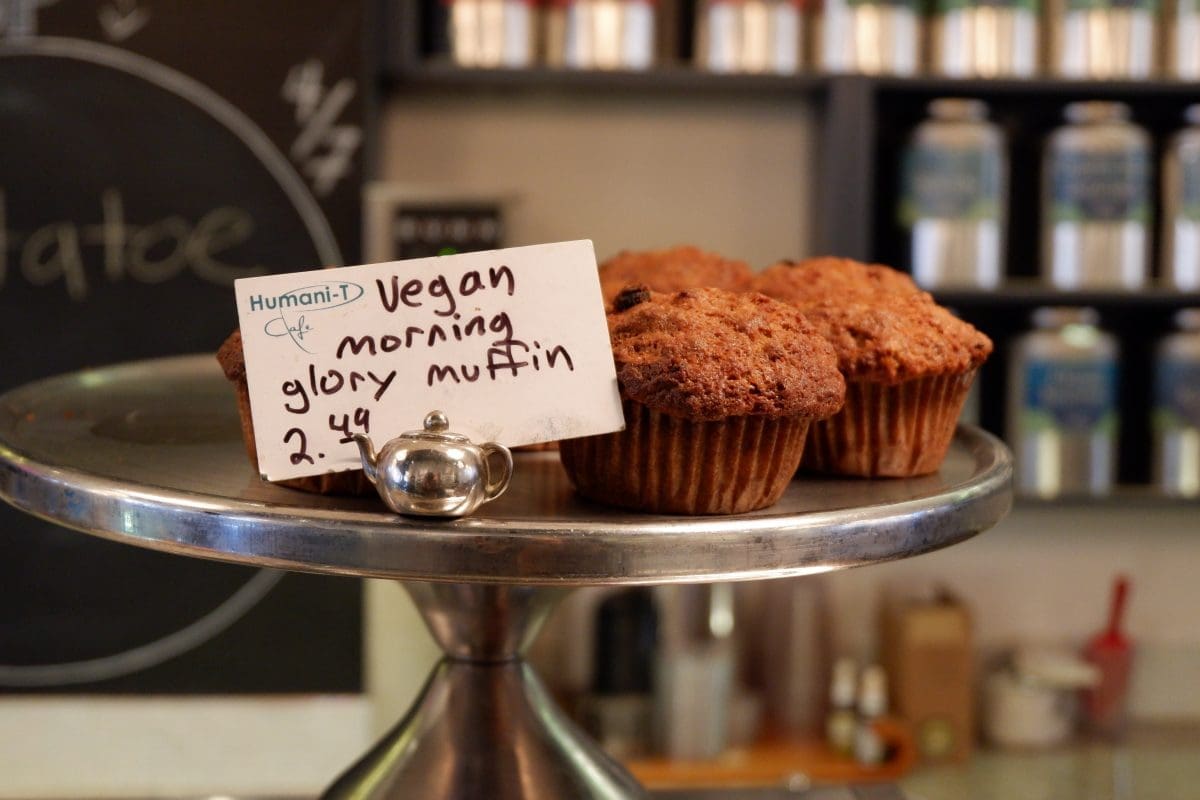 Humani-T
Cafe
Vegan
morning
glory muffin
2.49
tatoe